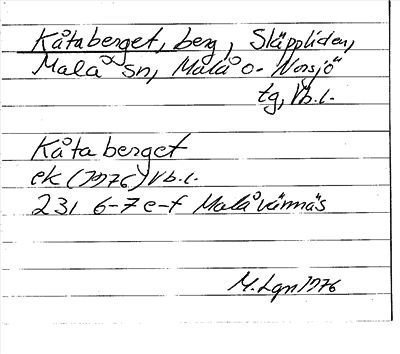 Kåtaberget, berg, Släppliden,
Malå sn, Malå o- Norsjö
tg, Vb.l.
Kåtaberget
ek (1976) Vb.l.
231 6-7 e-f Malåvännäs
M.Lgn 1976